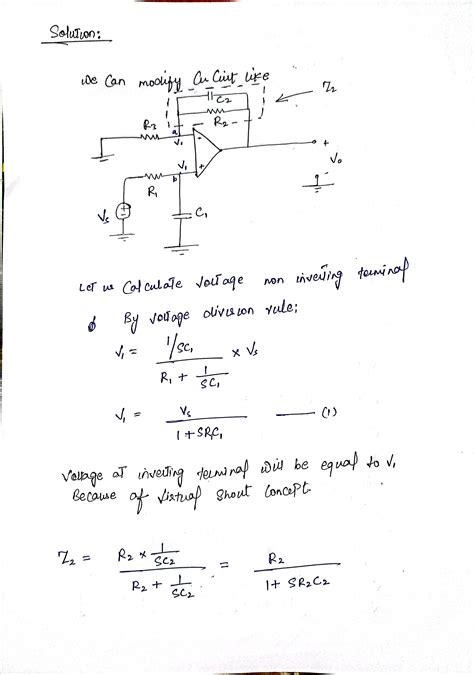 Solution:
we Can modify Circuit like
C2
Z2
R3
R2
a
V1
-
V1
+
+
b
V0
R1
Vs
C1
Let us Calculate voltage non inverting terminal
By voltage division rule;
V1 = (1/SC1) / (R1 + 1/SC1) × Vs
V1 = Vs / (1+SR1C1) —— (1)
Voltage at inverting terminal will be equal to V1
Because of virtual short Concept
Z2 = (R2 × 1/SC2) / (R2 + 1/SC2) = R2 / (1+ SR2C2)